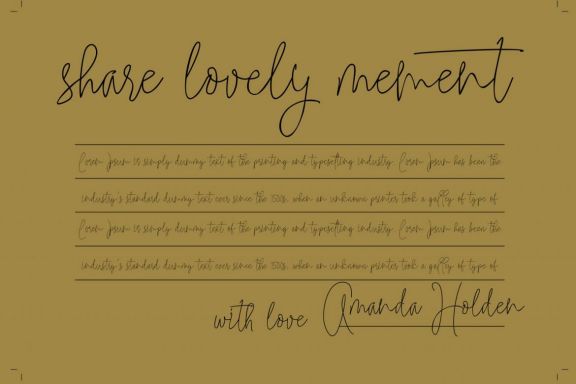 share lovely mement
Lorem Ipsum is simply dummy text of the printing and typesetting industry. Lorem Ipsum has been the
industry's standard dummy text ever since the 1500s, when an unknown printer took a galley of type of
Lorem Ipsum is simply dummy text of the printing and typesetting industry. Lorem Ipsum has been the
industry's standard dummy text ever since the 1500s, when an unknown printer took a galley of type of
with love Amanda Holden